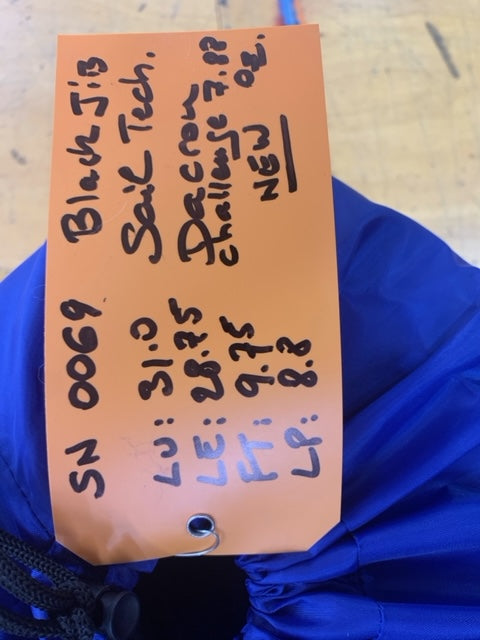 SN 0069 Black Jib
LU: 31.0 Sail Tech.
LE: 28.75 Dacron
FT: 9.75 Challenge 7.88
LP: 8.8 NEW OZ.